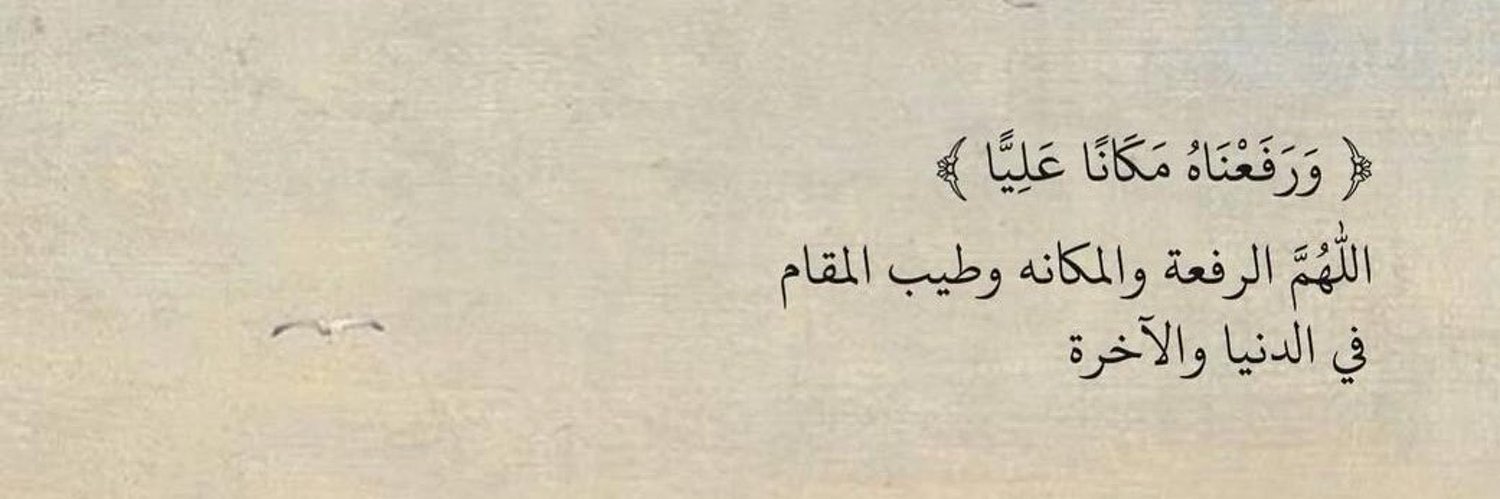 ﴿ وَرَفَعْنَاهُ مَكَانًا عَلِيًّا ﴾
اللّٰهُمَّ الرفعة والمكانه وطيب المقام
في الدنيا والآخرة